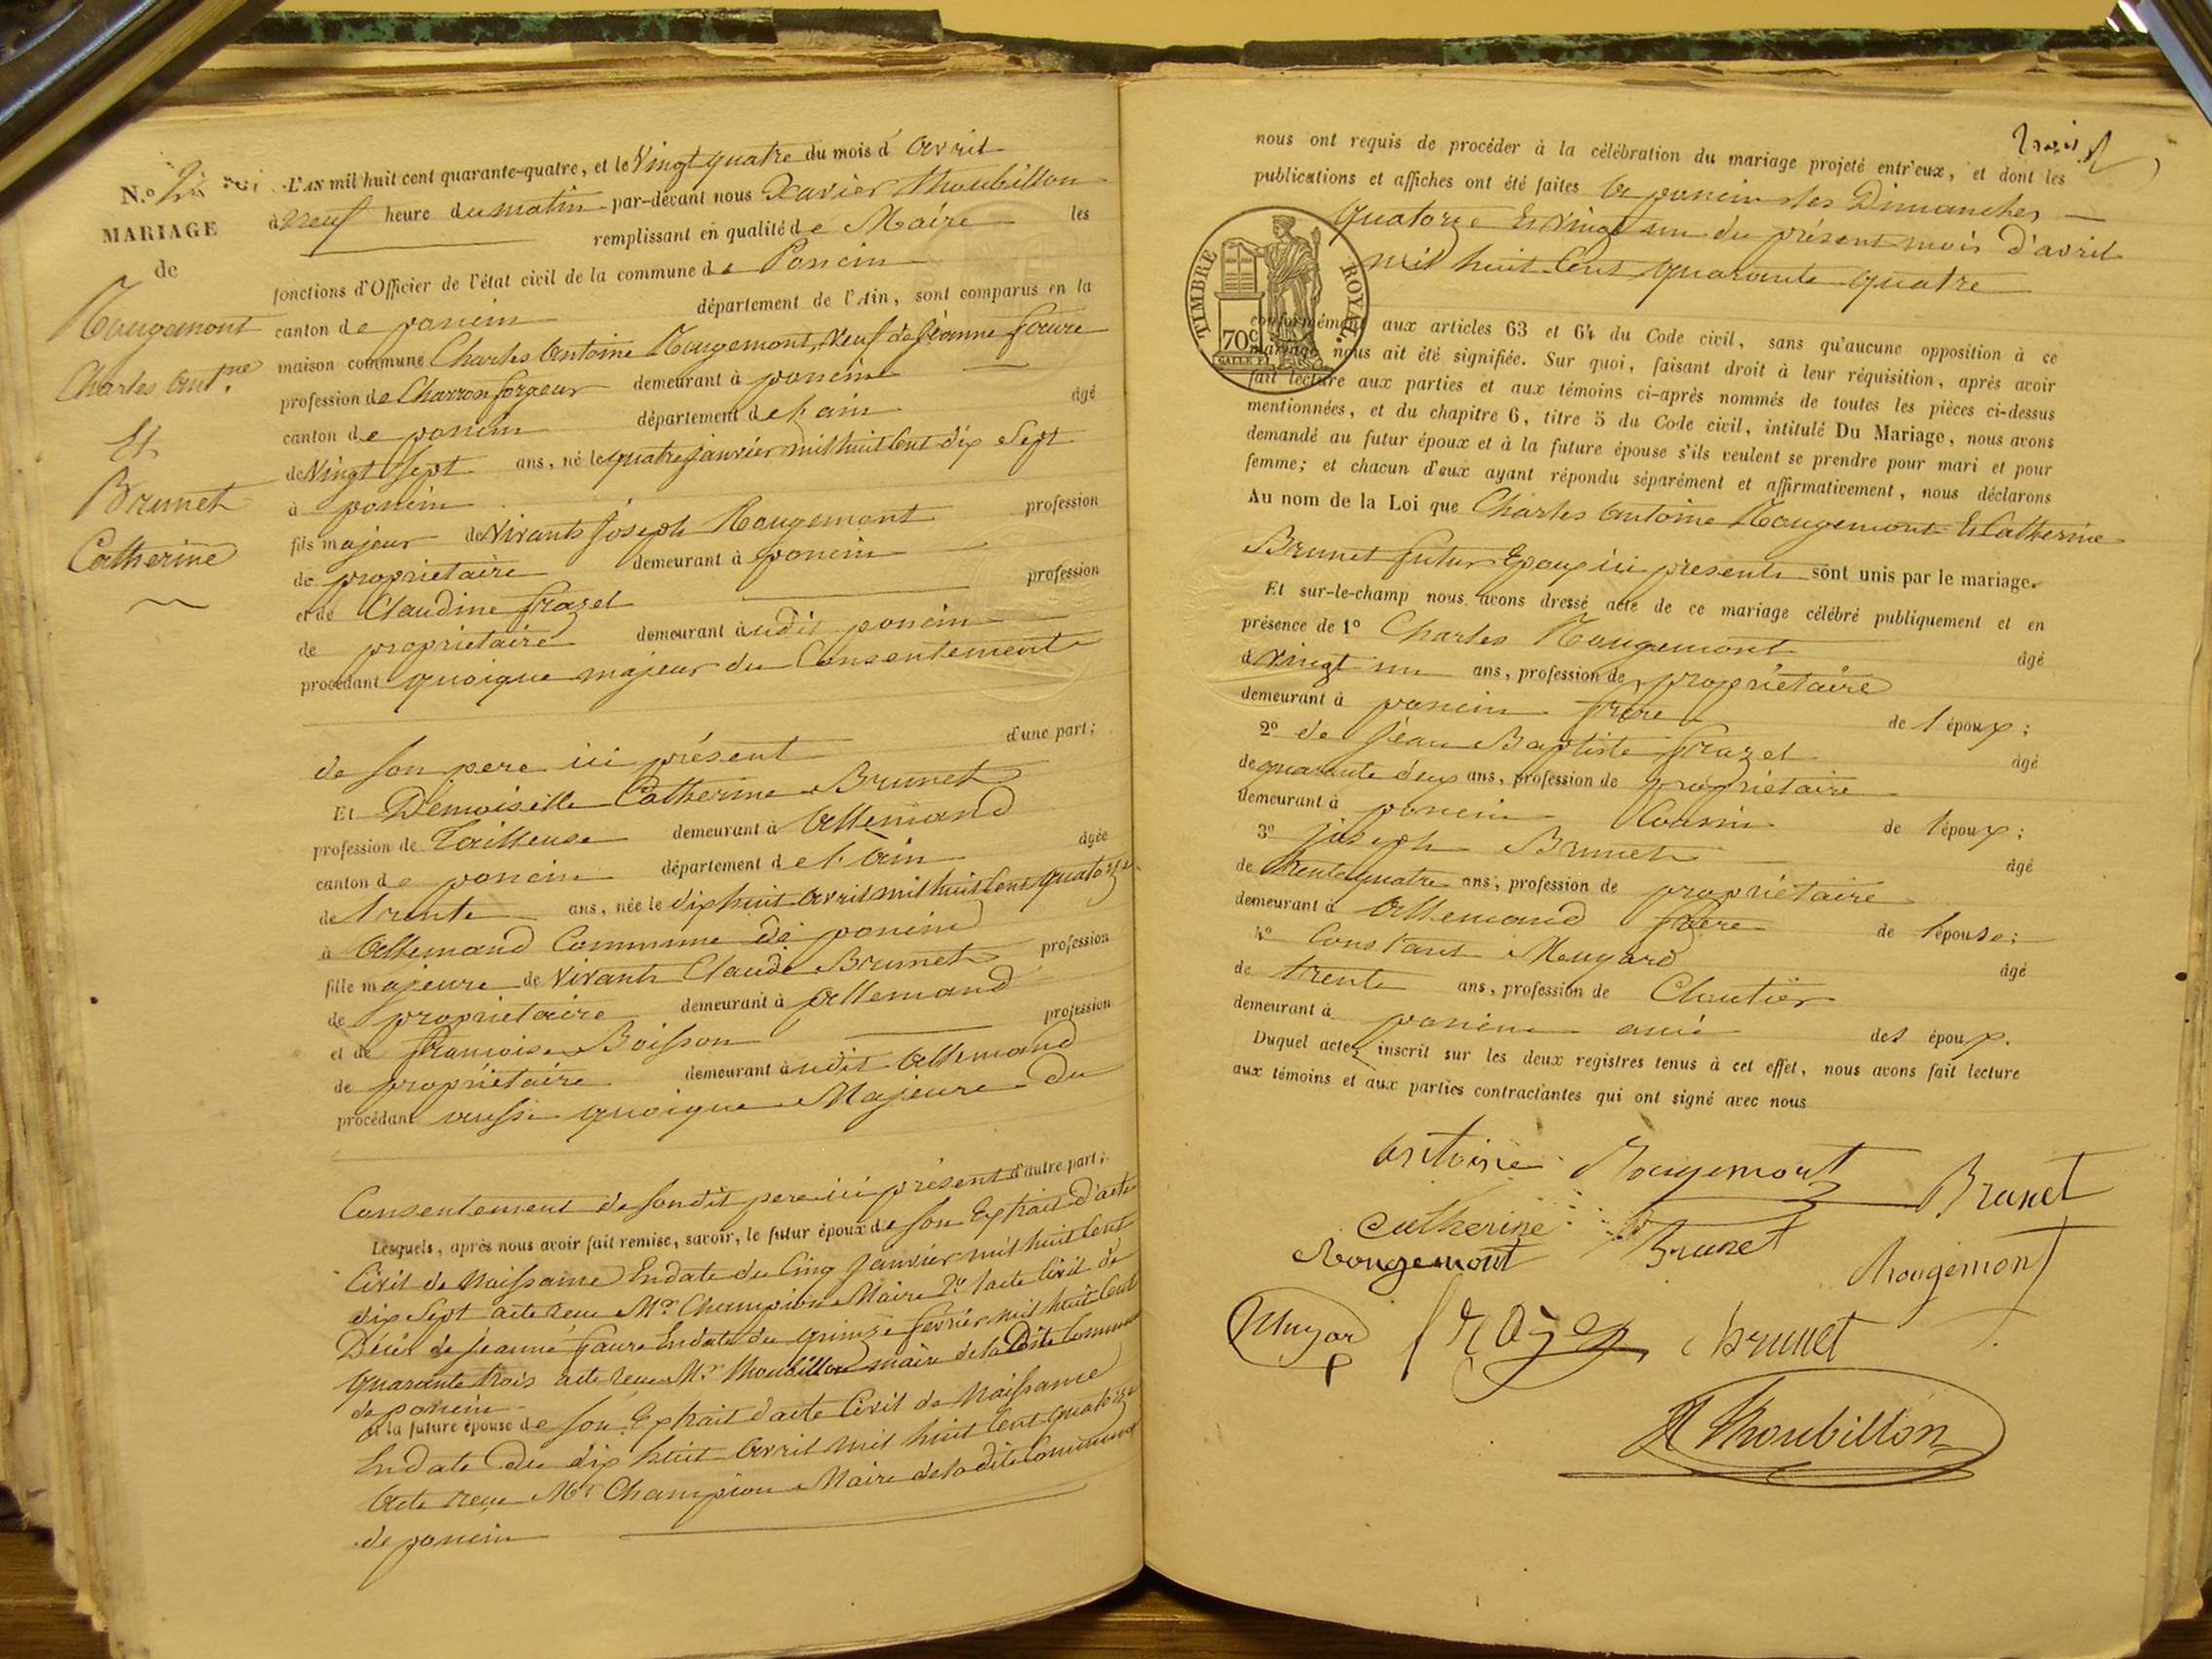 N.o
MARIAGE
de
Rougemont
Charles Ant.ne
Et
Brunet
Catherine
L'AN mil huit cent quarante-quatre, et le Vingt quatre du mois d'avril
à neuf heure du matin par-devant nous Xavier Thoubillon
remplissant en qualité de Maire les
fonctions d'Officier de l'état civil de la commune de Poncin
canton de poncin département de l'Ain, sont comparus en la
maison commune Charles Antoine Rougemont, Veuf de Jeanne faure
profession de Charron forgeur demeurant à poncin
canton de poncin département de l'ain âgé
de Vingt Sept ans, né le quatre janvier mil huit Cent dix Sept
à poncin
fils majeur de Vivants Joseph Rougemont profession
de proprietaire demeurant à poncin
et de Claudine frazel profession
de proprietaire demeurant audit poncin
procédant quoique majeur du Consentement
de son pere ici présent d'une part;
Et Demoiselle Catherine Brunet
profession de Tailleuse demeurant à Allemand
canton de poncin département de l'Ain âgée
de trente ans, née le dix huit Avril mil huit Cent quatorze
à Allemand Commune de poncin
fille majeure de Vivants Claude Brunet profession
de proprietaire demeurant à Allemand
et de françoise Boisson profession
de propriétaire demeurant audit Allemand
procédant aussi quoique Majeure du
Consentement de sondit pere ici présent d'autre part;
Lesquels, après nous avoir fait remise, savoir, le futur époux de son Extrait d'acte
Civil de Naissance En date du Cinq Janvier mil huit Cent
dix Sept acte reçu Mr. Champion Maire 2o l'acte Civil de
Décès de Jeanne faure En date du quinze février mil huit Cent
quarante trois acte reçu Mr. Thoubillon maire de la Dite Commune
de poncin
et la future épouse de son Extrait d'acte Civil de Naissance
En date du dix huit Avril mil huit Cent quatorze
Acte reçu Mr. Champion Maire de ladite Commune
de poncin
trois
nous ont requis de procéder à la célébration du mariage projeté entr'eux, et dont les
publications et affiches ont été faites A poncin les Dimanches
quatorze Et Vingt un du présent mois d'avril
mil huit Cent quarante quatre
TIMBRE ROYAL.
70c
conformément aux articles 63 et 64 du Code civil, sans qu'aucune opposition à ce
mariage nous ait été signifiée. Sur quoi, faisant droit à leur réquisition, après avoir
fait lecture aux parties et aux témoins ci-après nommés de toutes les pièces ci-dessus
mentionnées, et du chapitre 6, titre 5 du Code civil, intitulé Du Mariage, nous avons
demandé au futur époux et à la future épouse s'ils veulent se prendre pour mari et pour
femme; et chacun d'eux ayant répondu séparément et affirmativement, nous déclarons
Au nom de la Loi que Charles Antoine Rougemont Et Catherine
Brunet futur Epoux ici presents sont unis par le mariage.
Et sur-le-champ nous avons dressé acte de ce mariage célébré publiquement et en
présence de 1o Charles Rougemont âgé
d Vingt un ans, profession de propriétaire
demeurant à poncin frere de l'époux;
2o de Jean Baptiste frazel âgé
de quarante deux ans, profession de propriétaire
demeurant à poncin Cousin de l'époux;
3o joseph Brunet âgé
de trente quatre ans, profession de propriétaire
demeurant à Allemand frere de l'épouse;
4o Constant Mugard âgé
de trente ans, profession de Cloutier
demeurant à poncin ami des époux.
Duquel acte, inscrit sur les deux registres tenus à cet effet, nous avons fait lecture
aux témoins et aux parties contractantes qui ont signé avec nous
antoine Rougemont Brunet
Catherine Brunet
Rougemont Rougemont
Mugard frazel brunet
Thoubillon